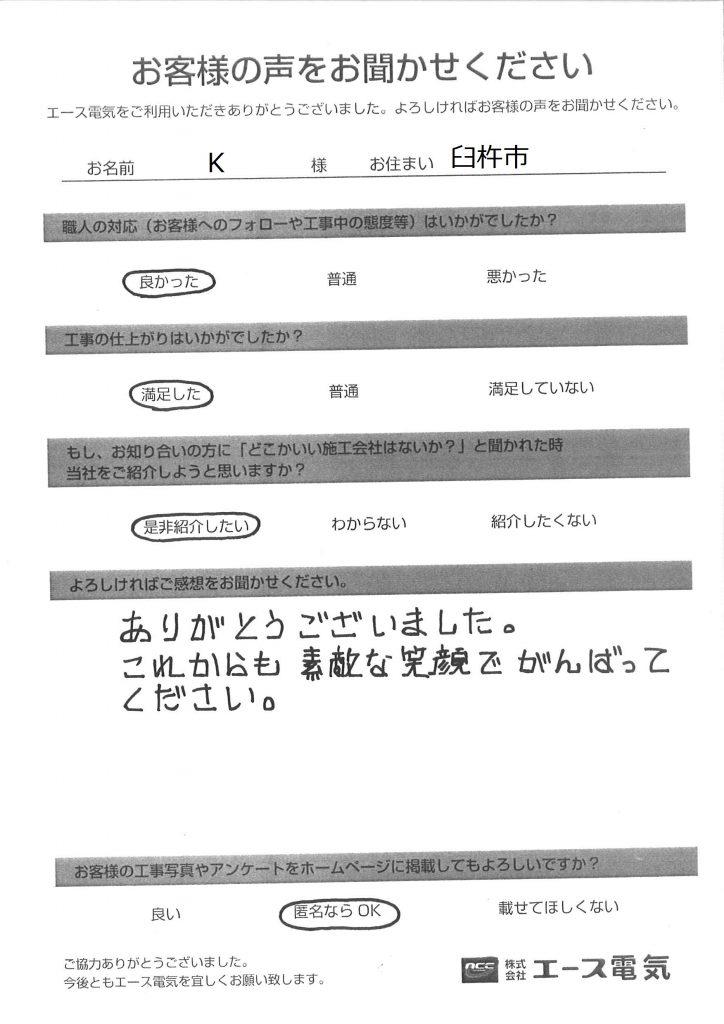 お客様の声をお聞かせください
エース電気をご利用いただきありがとうございました。よろしければお客様の声をお聞かせください。
お名前 K 様 お住まい 臼杵市
職人の対応（お客様へのフォローや工事中の態度等）はいかがでしたか？
良かった 普通 悪かった
工事の仕上がりはいかがでしたか？
満足した 普通 満足していない
もし、お知り合いの方に「どこかいい施工会社はないか？」と聞かれた時
当社をご紹介しようと思いますか？
是非紹介したい わからない 紹介したくない
よろしければご感想をお聞かせください。
ありがとうございました。
これからも素敵な笑顔でがんばって
ください。
お客様の工事写真やアンケートをホームページに掲載してもよろしいですか？
良い 匿名なら OK 載せてほしくない
ご協力ありがとうございました。
今後ともエース電気を宜しくお願い致します。
ACC 株式会社 エース電気